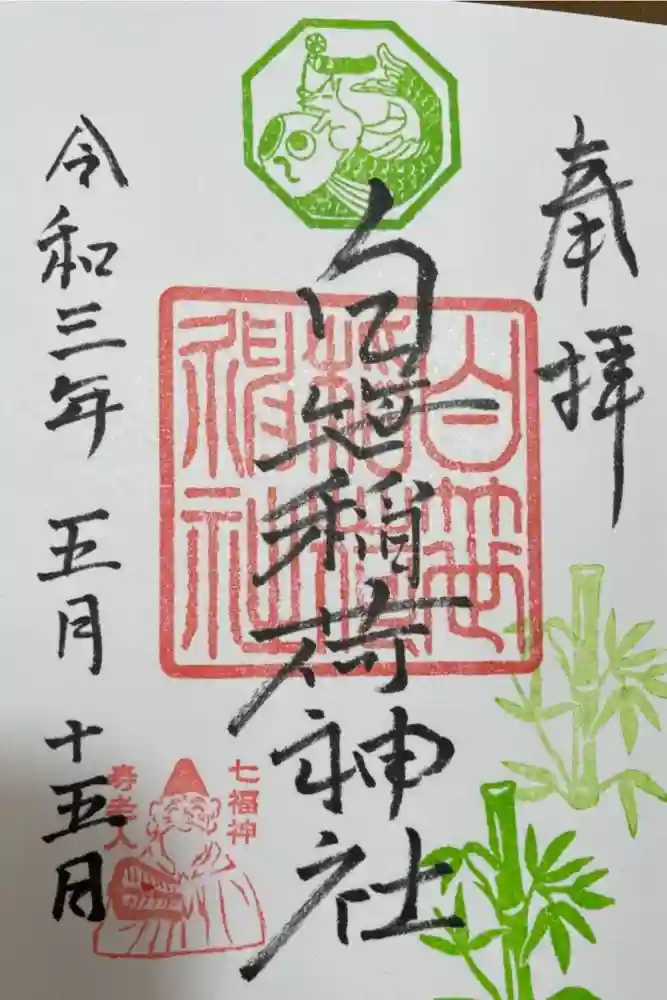 奉拝
白笹稲荷神社
白笹
稲荷
神社
令和三年 五月 十五日
七福神
寿老人